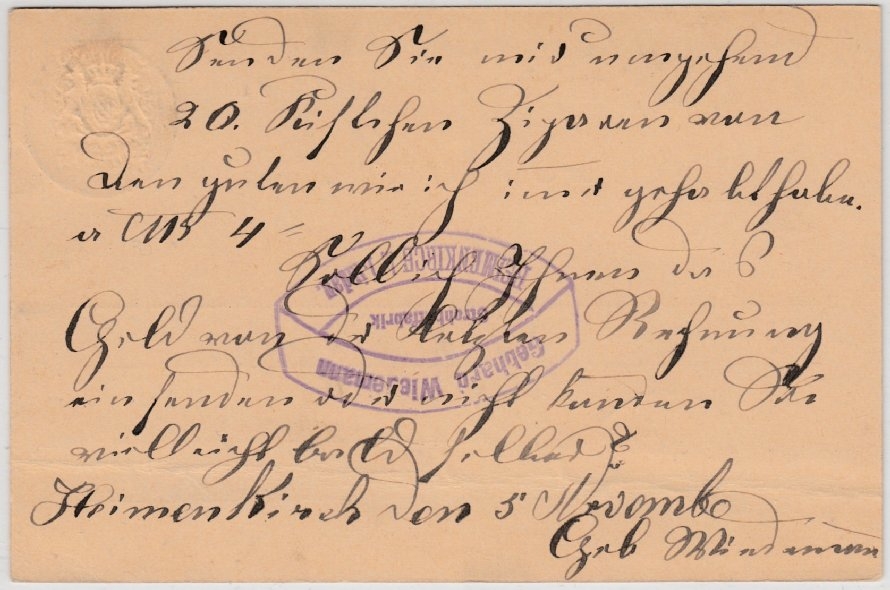 Senden Sie mir umgehend
20. Kistchen Zigaren von
den guten wie ich immer gehabt habe.
a M 4 =
Soll ich Ihnen das
Geld von der letzten Rechnung
einsenden oder nicht kommen Sie
vielleicht bald selber?
Heimenkirch den 5 Novemb
Geb Wiedemann
Gebhard Wiedemann
Strohhutfabrik
HEIMENKIRCH